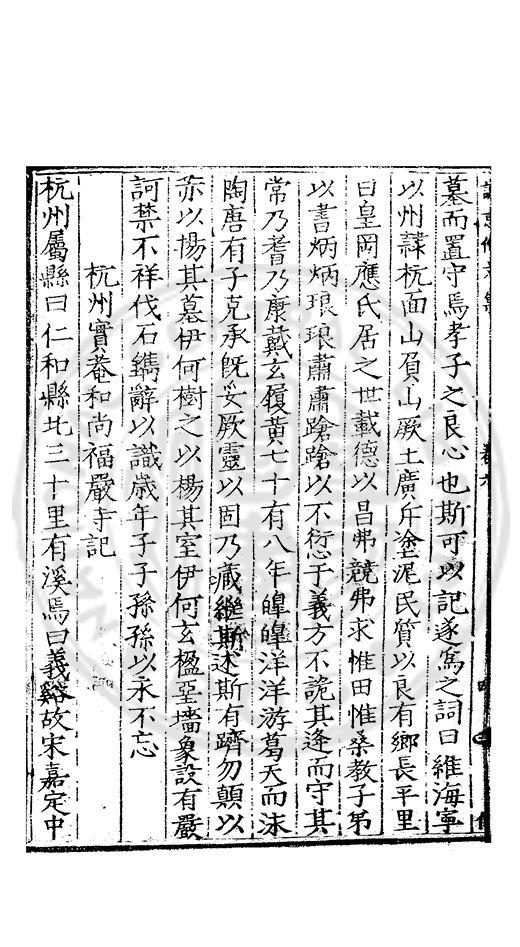 墓而置守焉孝子之良心也斯可以記遂為之詞曰維海寧
以州隸杭面山負山厥土廣斥塗泥民質以良有鄉長平里
曰皇岡應氏居之世載德以昌弗競弗求惟田惟桑教子弟
以書炳炳琅琅肅肅蹌蹌以不愆于義方不詭其逢而守其
常乃耆乃康戴玄履黃七十有八年皥皥洋洋游葛天而沬
陶唐有子克承既妥厥靈以固乃藏繼斯述斯有躋勿顛以
蒂以揚其墓伊何樹之以楊其室伊何玄楹堊墻象設有嚴
訶禁不祥伐石鐫辭以識歲年子子孫孫以永不忘
杭州實菴和尚福嚴寺記
杭州屬縣曰仁和縣北三十里有溪焉曰義谿故宋嘉定中